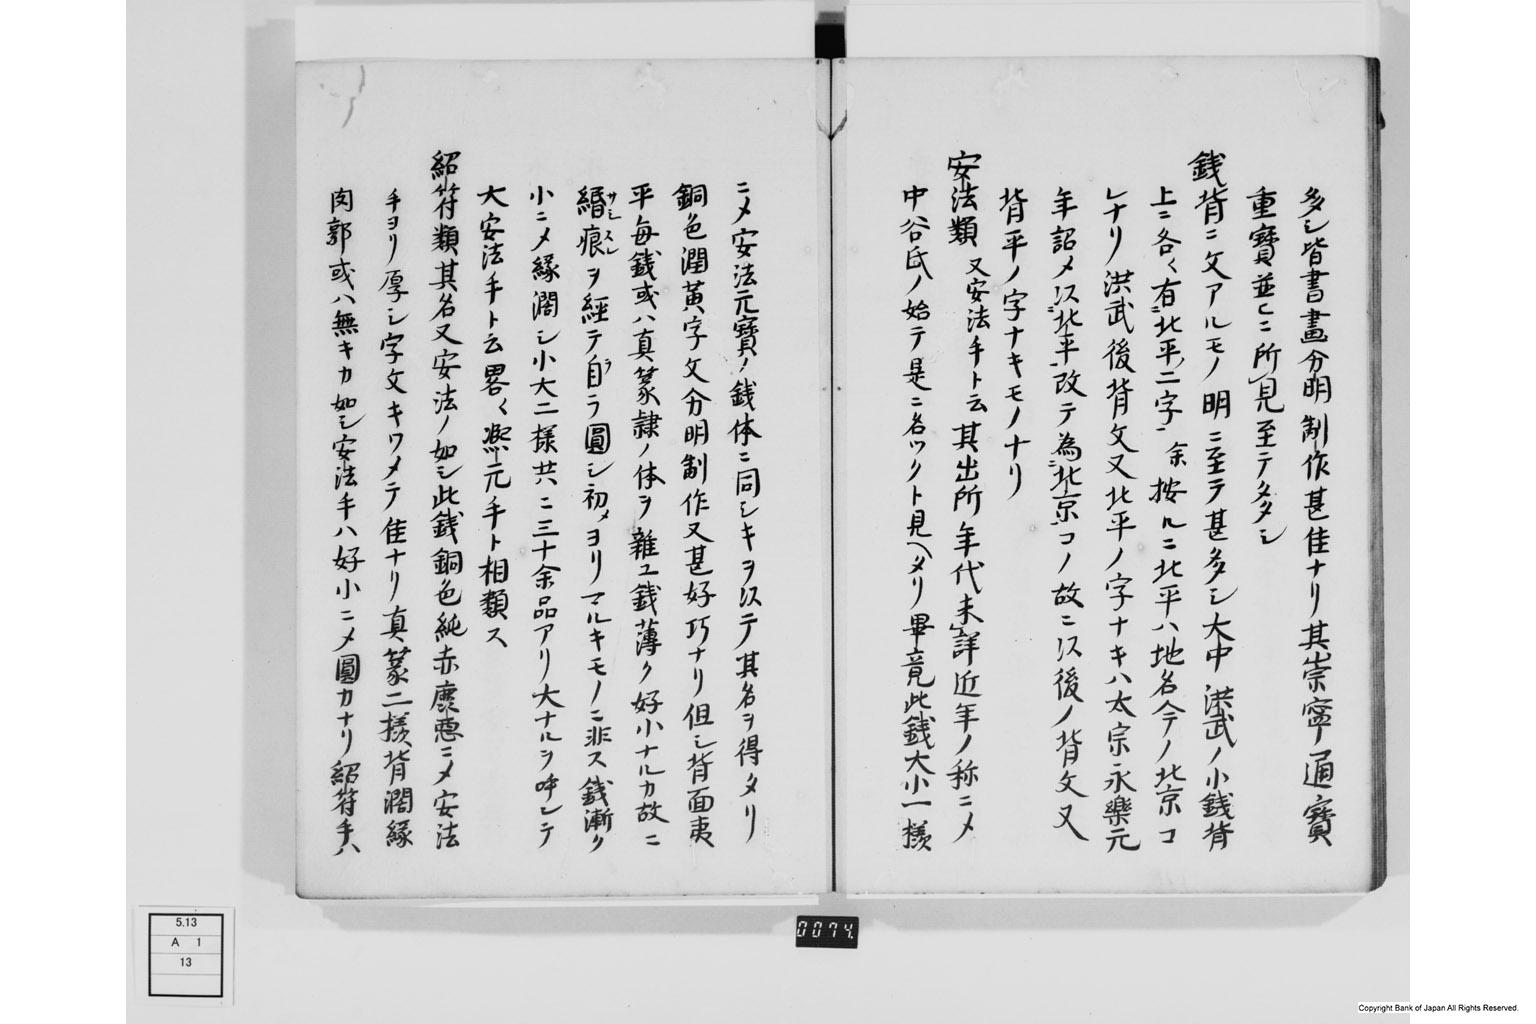 多シ皆書畫分明制作甚佳ナリ其崇寧通寳
重寳並ヒニ所見至テ多シ
銭背ニ文アルモノ明ニ至テ甚多シ大中洪武ノ小銭背
上ニ各〻有北平二字余按ルニ北平ハ地名今ノ北京コ
レナリ洪武後背文又北平ノ字ナキハ太宗永樂元
年詔メ以北平改テ為北京コノ故ニ以後ノ背文又
背平ノ字ナキモノナリ
安法類又安法手ト云其出所年代未詳近年ノ称ニメ
中谷氏ノ始テ是ニ名ツクト見ヘタリ畢竟此銭大小一様
ニメ安法元寳ノ銭体ニ同シキヲ以テ其名ヲ得タリ
銅色潤黄字文分明制作又甚好巧ナリ但シ背面夷
平毎銭或ハ真篆隷ノ体ヲ雜ユ銭薄ク好小ナルカ故ニ
緡痕サシスレヲ經テ自ラ圓シ初メヨリマルキモノニ非ス銭漸ク
小ニメ縁濶シ小大二様共ニ三十余品アリ大ナルヲ呼シテ
大安法手ト云畧〻熈元手ト相類ス
紹符類其名又安法ノ如シ此銭銅色純赤麁悪ニメ安法
手ヨリ厚シ字文キワメテ佳ナリ真篆二様背濶縁
肉郭或ハ無キカ如シ安法手ハ好小ニメ圓カナリ紹符手ハ
0074.
5.13
A 1
13
Copyright Bank of Japan All Rights Reserved.